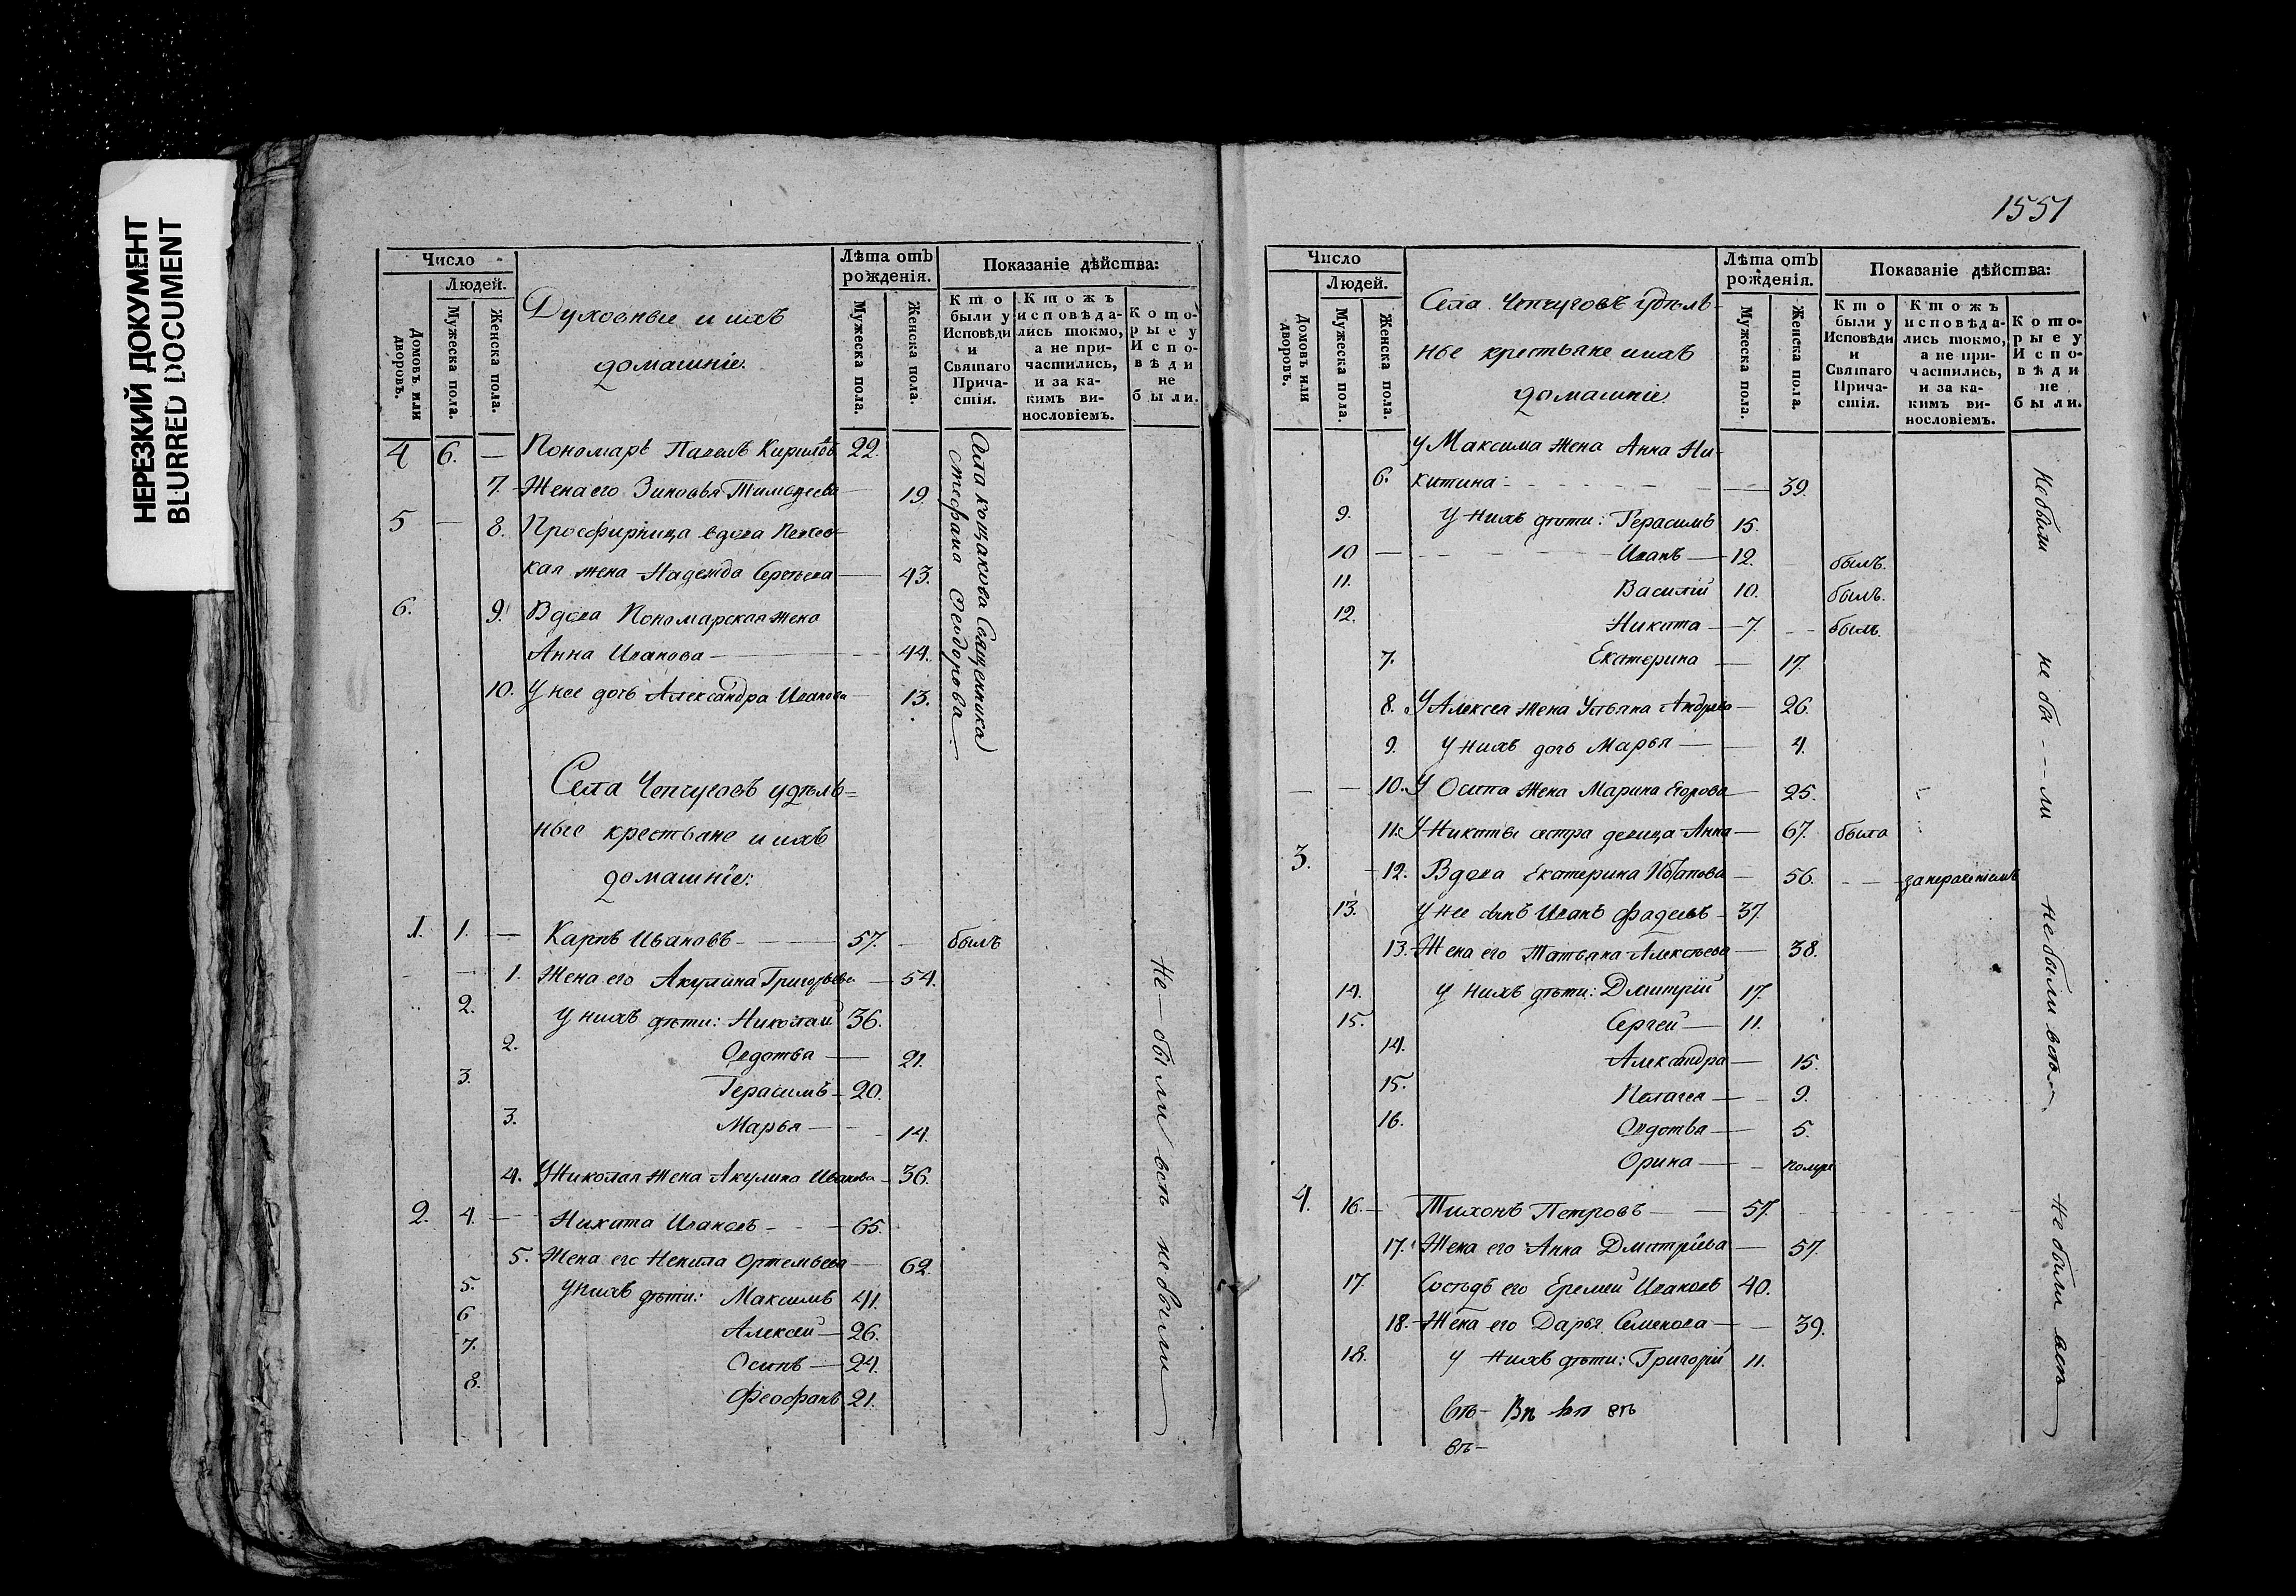 НЕРЕЗКИЙ ДОКУМЕНТ
BLURRED DOCUMENT
Число
Людей.
Домовъ или дворовъ.
Мужеска пола.
Женска пола.
Духовные и ихъ
домашніе.
Лѣта отъ рожденія.
Мужеска пола.
Женска пола.
Показаніе дѣйства:
Кто были у Исповѣди и Святаго Причастія.
Ктожъ исповѣдались токмо, а не причастились, и за какимъ винословіемъ.
Которые у Исповѣди не были.
4 6. — Пономарь Павелъ Кириловъ 22.
7. Жена его Зиновья Тимофеева 19.
5 — 8. Просфирница вдова
кая жена Надежда Сергѣева — 43.
6. 9. Вдова Пономарская жена
Анна Иванова — 44.
10. У нее дочь Александра Иванова — 13.
Села Священника
Стефана Феодорова
Села Чепчуговъ удѣль=
ные крестьяне и ихъ
домашніе:
1. 1. — Карпъ Ивановъ — 57. былъ
1. Жена его Акулина Григорьева — 54.
2. У нихъ дѣти: Николай 36.
2. Федотья — 21.
3. Герасимъ — 20.
3. Марья — 14.
4. У Николая жена Акулина Иванова — 36.
2. 4. — Никита Ивановъ — 65.
5. Жена его Ненила Ортемьева — 62.
5. У нихъ дѣти: Максимъ 41.
6 Алексей — 26.
7. Осипъ — 24.
8. Феофанъ 21.
Не — были всѣ не были
1551
Число
Людей.
Домовъ или дворовъ.
Мужеска пола.
Женска пола.
Села Чепчуговъ удѣль-
ные крестьяне и ихъ
домашніе.
Лѣта отъ рожденія.
Мужеска пола.
Женска пола.
Показаніе дѣйства:
Кто были у Исповѣди и Святаго Причастія.
Ктожъ исповѣдались токмо, а не причастились, и за какимъ винословіемъ.
Которые у Исповѣди не были.
У Максима жена Анна Ни-
6. китина — 39.
9. У нихъ дѣти: Герасимъ 15.
10 — Иванъ — 12. былъ.
11. Василій 10. былъ.
12. Никита — 7. былъ.
7. Екатерина — 17.
8. У Алексея жена Устьяна Андрева — 26.
9. У нихъ дочь Марья — 4.
10. У Осипа жена Марина Егорова — 25.
11. У Никиты сестра девица Анна — 67. была
3. 12. Вдова Екатерина Потапова — 56. — за нерачениемъ
13. У нее сынъ Иванъ Фадеевъ — 37.
13. Жена его Татьяна Алексѣева — 38.
14. У нихъ дѣти: Дмитрій 17.
15. Сергей — 11.
14. Александра — 15.
15. Пелагея — 9.
16. Федотья — 5.
Орина —
4. 16 — Тихонъ Петровъ — 57.
17. Жена его Анна Дмитріева — 57.
17 Сосѣдъ его Еремей Ивановъ 40.
18. Жена его Дарья Семенова — 39.
18. У нихъ дѣти: Григорій 11.
Не были
не бы - - ли
Не были всѣ
Не были всѣ